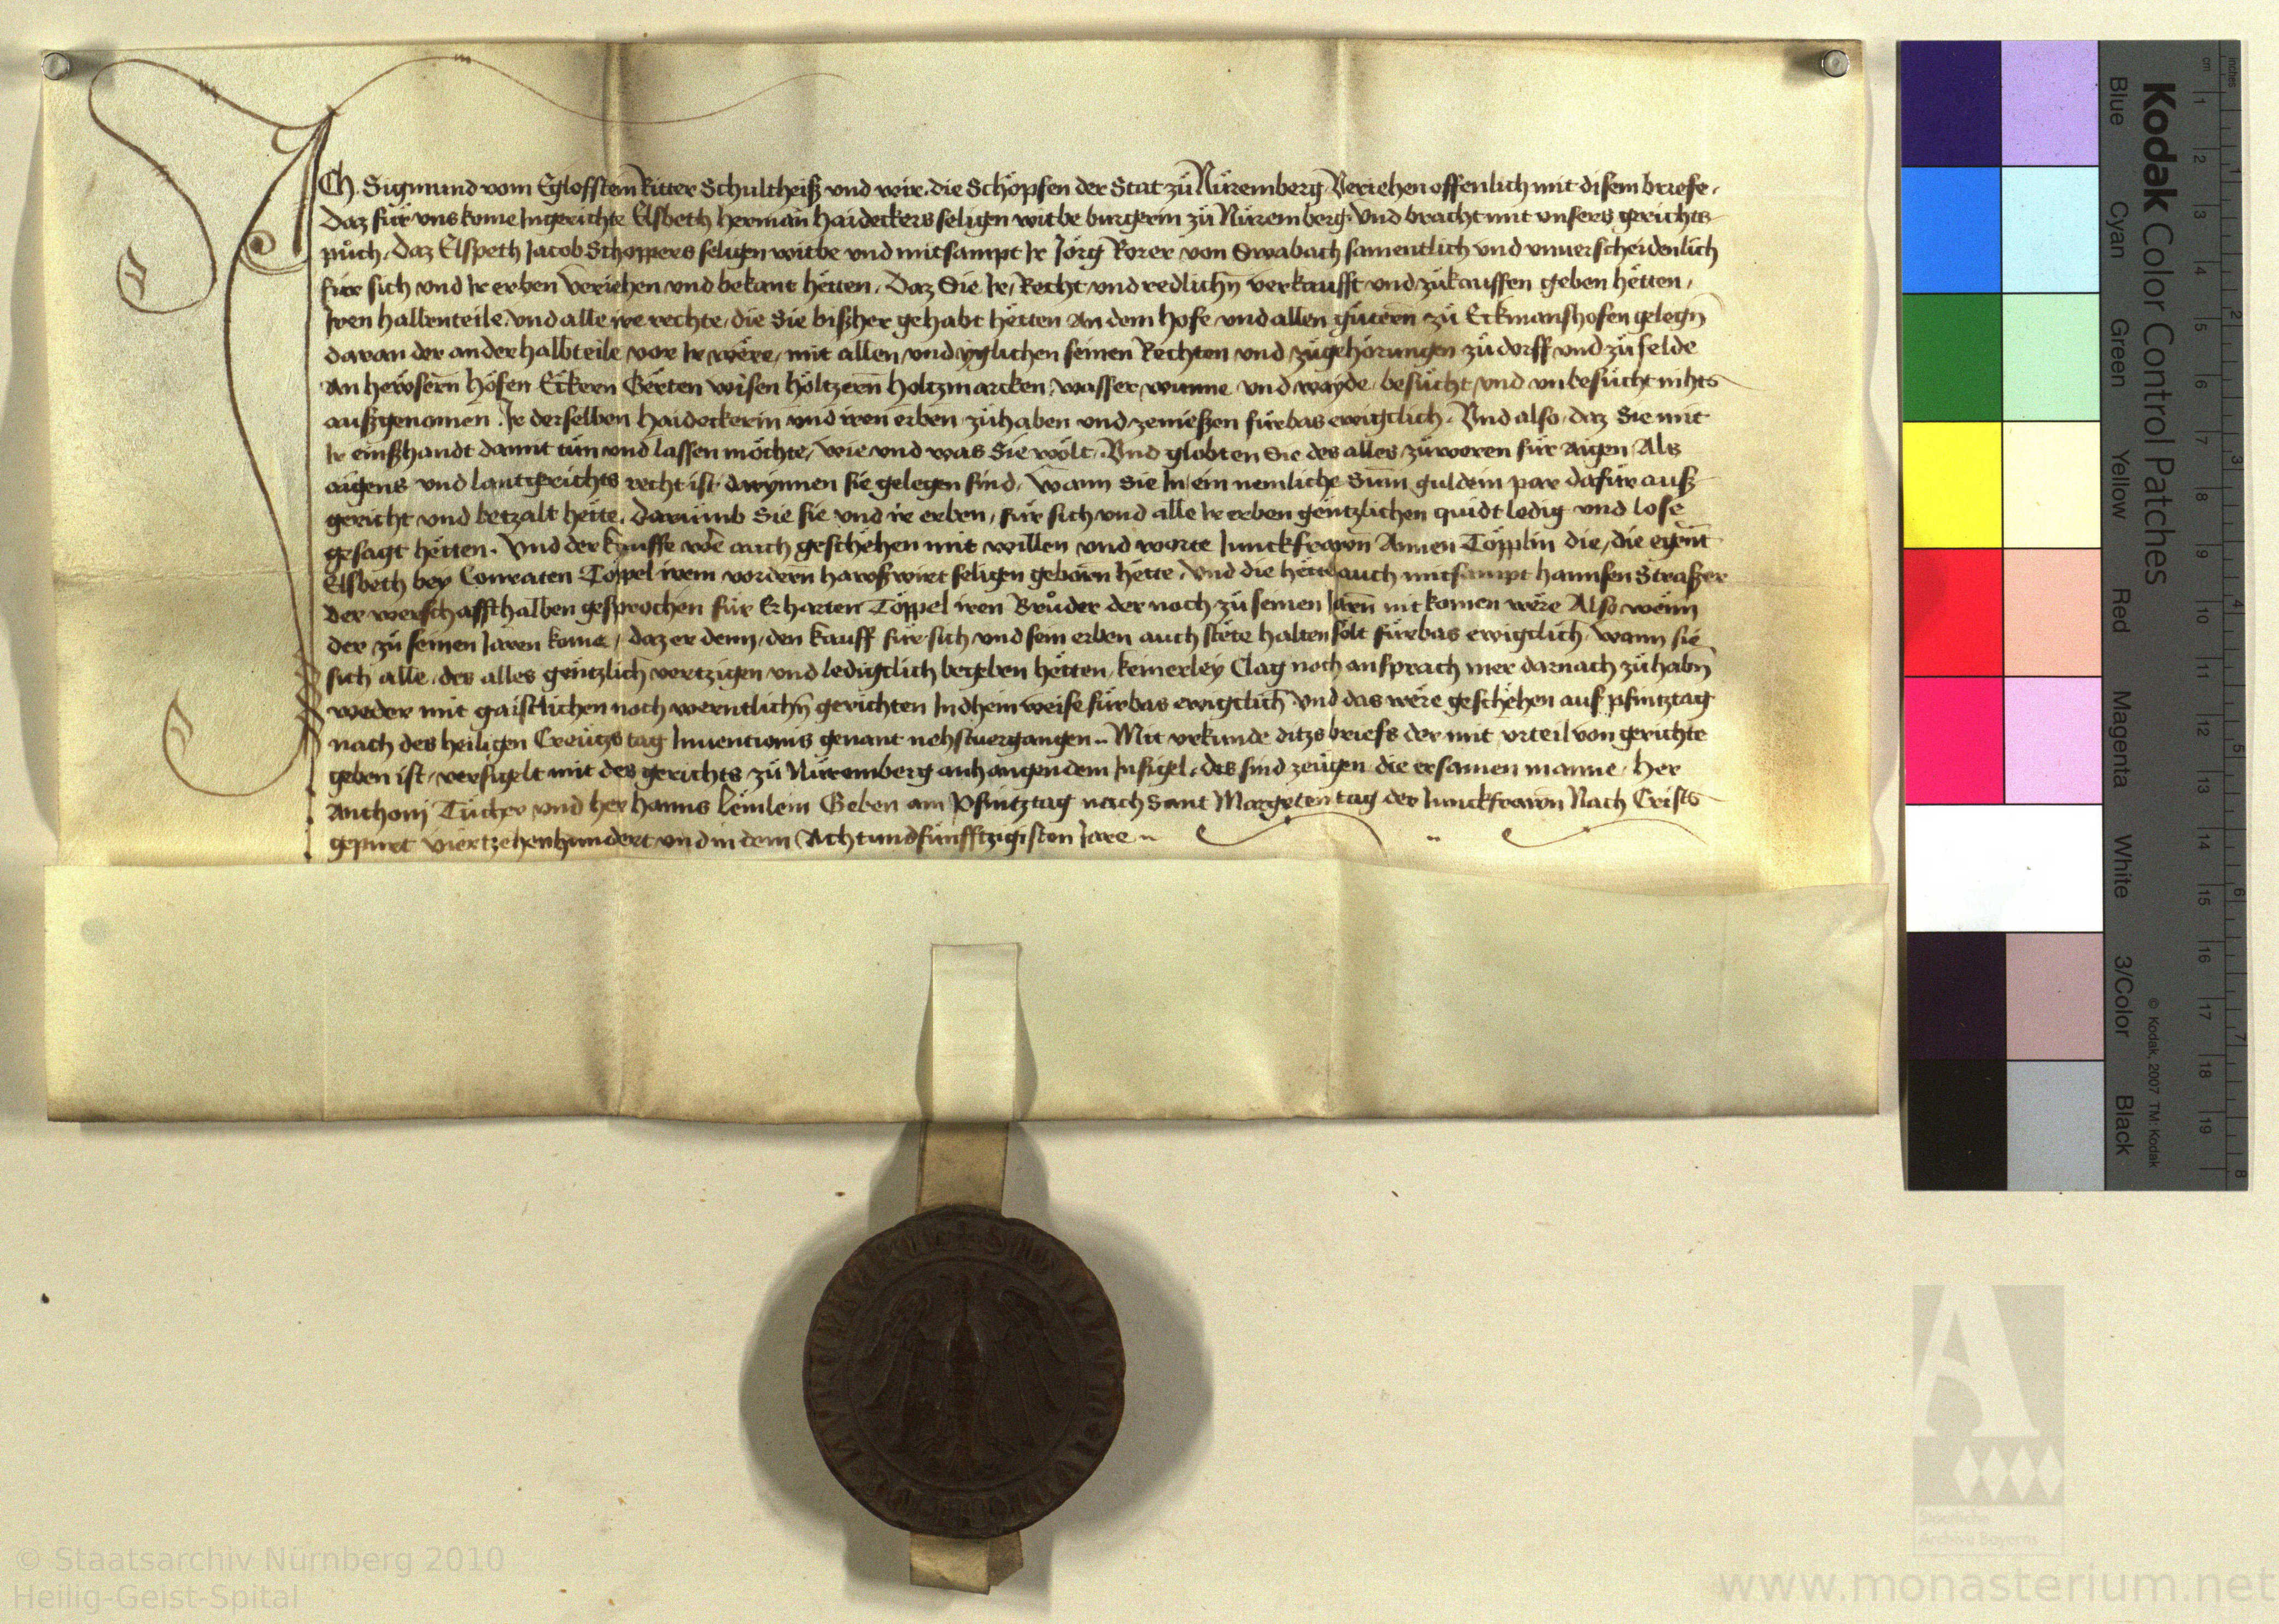 ICh Sigmund vom Egloffstein Ritter Schultheiß vnd wir die Schöpfen der Stat zů Nüremberg Veriehen offenlich mit disem briefe,
Daz für vns kome Ingerichte Elsbeth Herman Haideckers seligen witbe burgerin zů Nüremberg, Vnd bracht mit vnsers gerichts
půch, daz Elspeth Jacob Schoppers seligen witbe vnd mitsampt Ir Jörg Rorer von Swabach samentlich vnd vnuerscheidenlich
für sich vnd Ir erben Veriehen vnd bekant hetten, Daz Sie Ir, Recht vnd redlichn̄ verkaufft vnd zůkauffen geben hetten,
Iren halbenteile, vnd alle ire rechte, die Sie bißher gehabt hetten an dem hofe vnd allen gütern̄ zů Eckmanshofen gelegn̄
daran der ander halbteile vor Ir were, mit allen vnd yglichen seinen Rechten vnd zůgehörungen zů dorff vnd zů felde
an hewsern̄ höfen Eckern Gerten wisen höltzern̄ holtzmarcken, wasser, wunne vnd wayde, besücht vnd vnbesücht nichts
außgenomen. Ir derselben Haideckerin vnd iren erben zůhaben vnd zenießen fürbas ewigclich. Vnd also, daz Sie mit
Ir einßhandt damit tün vnd lassen möchte, wie vnd was Sie wölt, Vnd globten Sie des alles zůweren für aigen Als
aigens vnd lantgerichts recht ist darynnen sie gelegen sind, Wann Sie In ein nemliche Sum̄ guldein par dafür auß
gericht vnd betzalt hette, Darümb Sie sie vnd ir erben, für sich vnd alle Ir erben gentzlichen quidt ledig vnd lose
gesagt hetten. Vnd der kauffe wēr auch geschehen mit willen vnd worte Junckfrawn̄ Annen Töpplin die, die egen̄t
Elsbeth bey Conraten Töppel irem vordern haußwirt seligen geborn hette, Vnd die hette auch mitsampt Hannsen Straßer
der werschaffthalben gesprochen für Erharten Töppel iren Brůder der noch zů seinen Jarn̄ nit komen were Also wenn
der zů seinen Jaren kome, daz er denn, den kauff für sich vnd sein erben auch stete halten sölt fürbas ewigclich, Wann sie
sich alle, des alles gentzlich vertzigen vnd ledigclich begeben hetten, keinerley Clag noch ansprach mer darnach zůhabn̄
weder mit gaistlichen noch werntlichn̄ gerichten In dhein weise fürbas ewigclich Vnd das were geschehen auf pfintztag
nach des heiligen Creützs tag Inuentionis genant nehstuergangen .. Mit vrkunde ditzs briefs der mit vrteil von gerichte
geben ist, versigelt mit des gerichts zů Nüremberg anhangendem Insigel, des sind zeügen die ersamen manne, Her
Anthonj Tücher vnd her Hanns Lemlein Geben am Pfintztag nach Sant Margreten tag der Junckfrawn Nach Crists
gepurt viertzehenhundert vnd in dem Achtundfünfftzigisten Jare ..
Kodak Color Control Patches
Blue Cyan Green Yellow Red Magenta White 3/Color Black
© Kodak, 2007 TM: Kodak
cm 1 2 3 4 5 6 7 8 9 10 11 12 13 14 15 16 17 18 19
inches 1 2 3 4 5 6 7 8
Staatliche
Archive Bayerns
© Staatsarchiv Nürnberg 2010
Heilig-Geist-Spital
www.monasterium.net